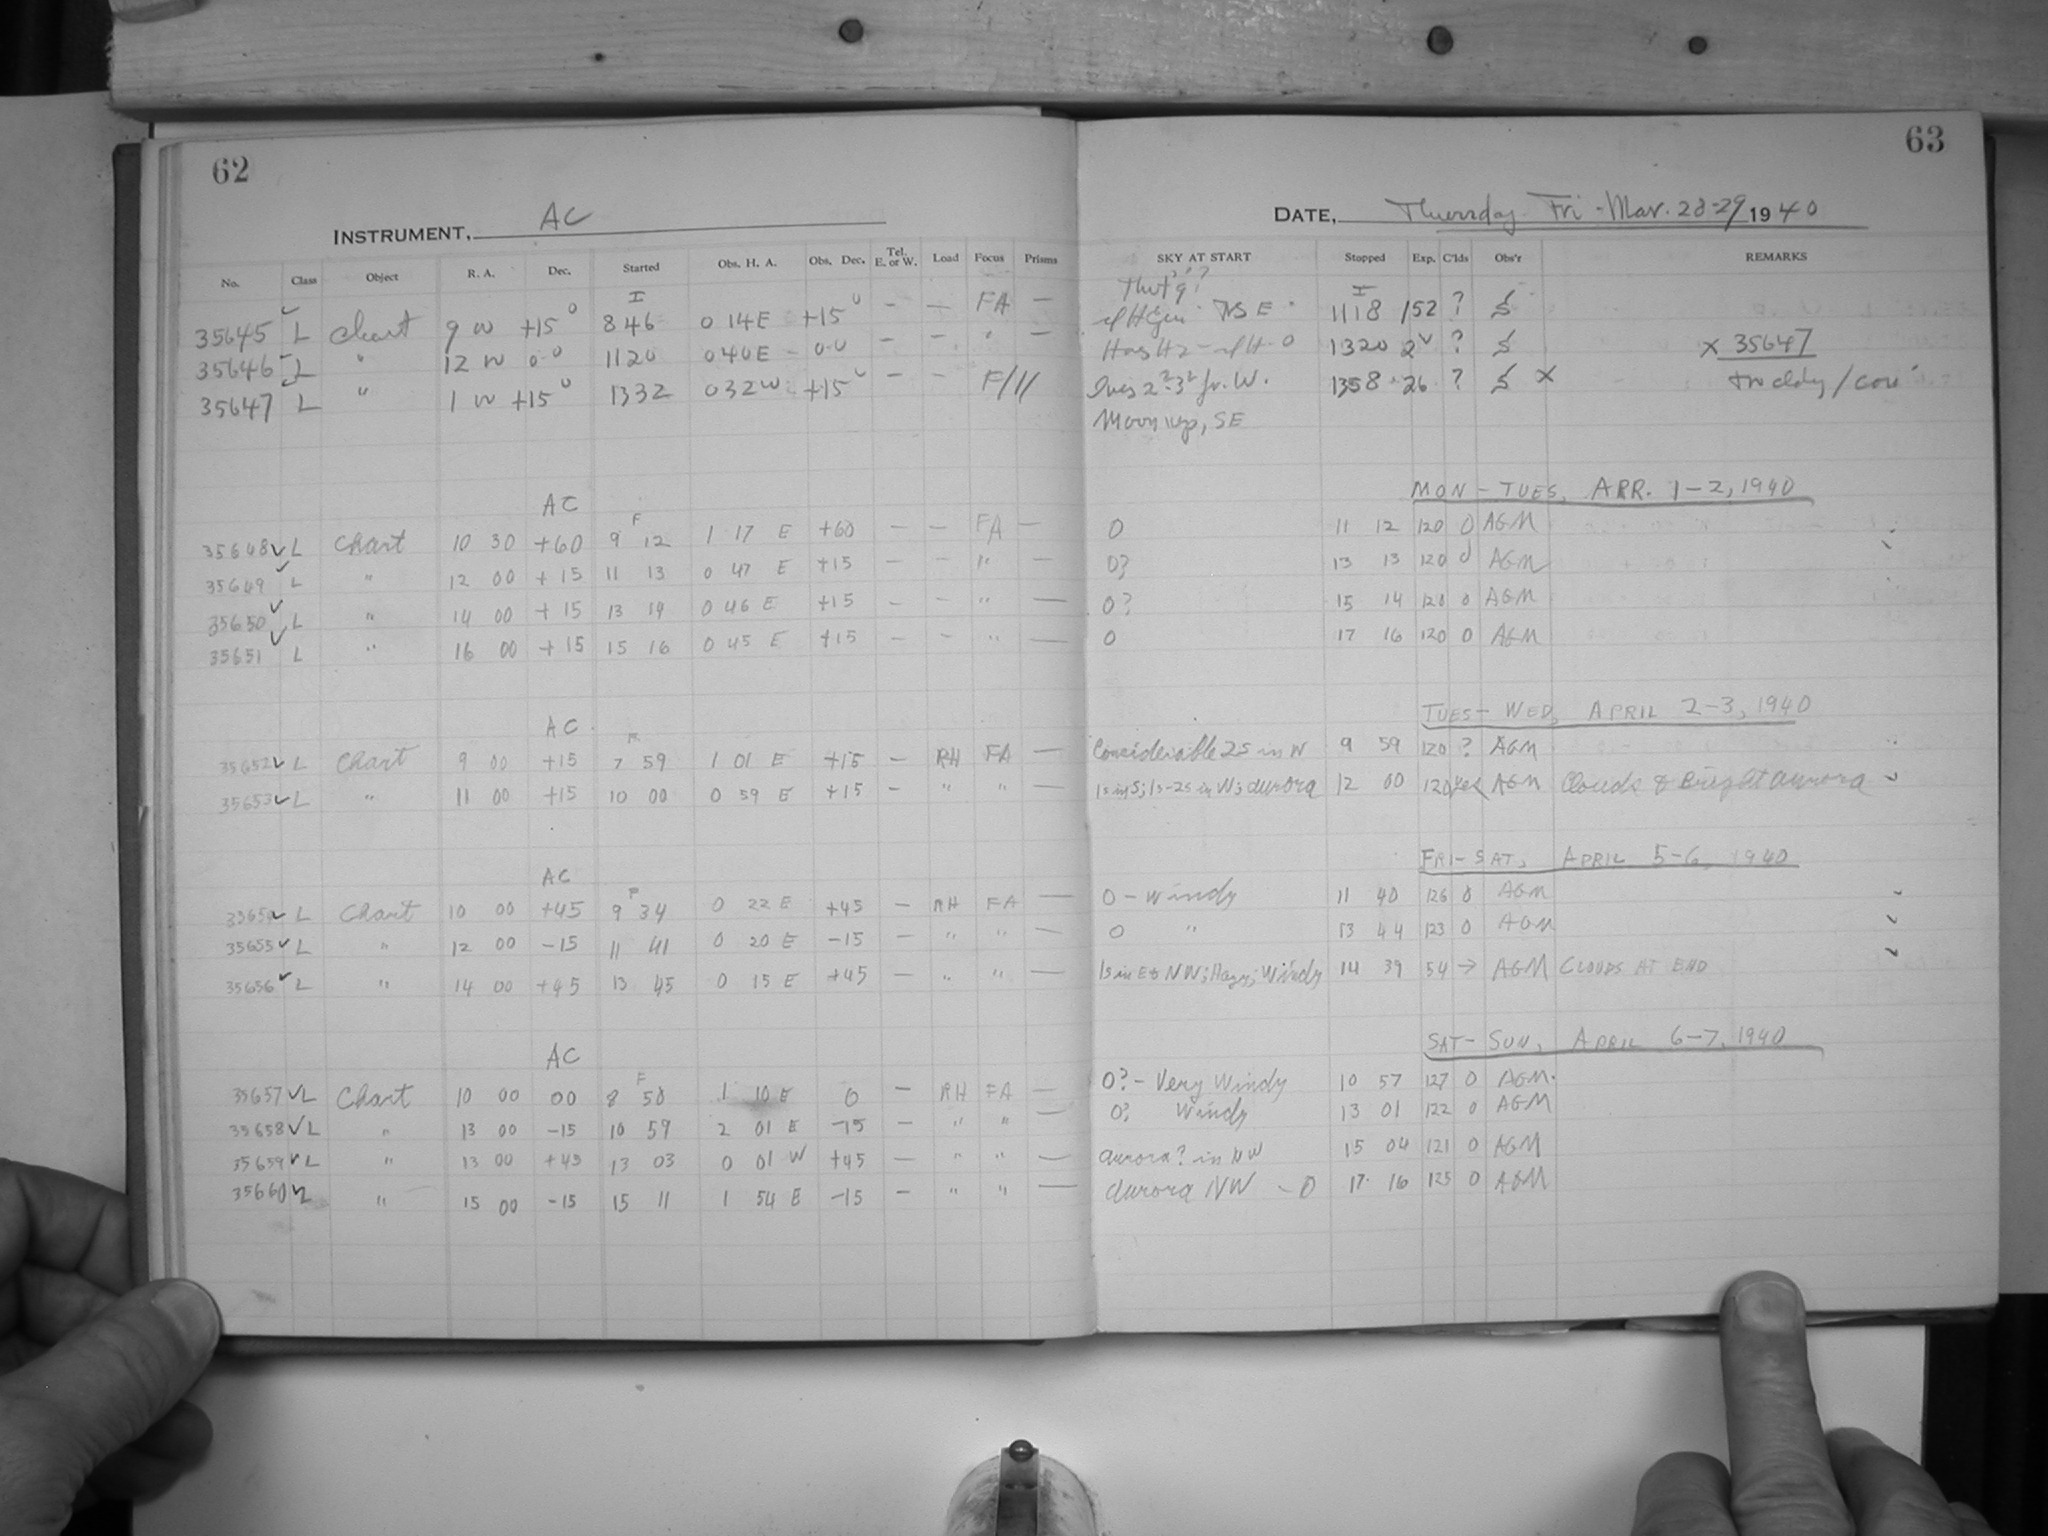 62
INSTRUMENT, AC
No. Class Object R. A. Dec. Started Obs. H. A. Obs. Dec. Tel. E. or W. Load Focus Prisms
35645 L Chart 9 00 +15° 8 46 0 14 E +15° — — FA —
35646 L " 12 00 0 0 11 20 0 40 E 0 0 — — " —
35647 L " 1 00 +15° 13 32 0 32 W +15° — — F/11
AC
35648 ✓ L Chart 10 30 +60 F 9 12 1 17 E +60 — — FA —
35649 ✓ L " 12 00 +15 11 13 0 47 E +15 — — " —
35650 ✓ L " 14 00 +15 13 14 0 46 E +15 — — " —
35651 ✓ L " 16 00 +15 15 16 0 45 E +15 — — " —
AC
35652 ✓ L Chart 9 00 +15 7 59 1 01 E +15 — RH FA —
35653 ✓ L " 11 00 +15 10 00 0 59 E +15 — " " —
AC
35654 ✓ L Chart 10 00 +45 F 9 34 0 22 E +45 — RH FA —
35655 ✓ L " 12 00 -15 11 41 0 20 E -15 — " " —
35656 ✓ L " 14 00 +45 13 45 0 15 E +45 — " " —
AC
35657 ✓ L Chart 10 00 00 F 8 50 1 10 E 0 — RH FA —
35658 ✓ L " 13 00 -15 10 59 2 01 E -15 — " " —
35659 ✓ L " 13 00 +45 13 03 0 01 W +45 — " " —
35660 ✓ L " 15 00 -15 15 11 1 54 E -15 — " " —
63
DATE, Thursday Fri - Mar. 28-29 1940
SKY AT START Stopped Exp. C'lds Obs'r REMARKS
11 18 152 ?
13 20 ? × 35647
13 58 26 ? ×
Moon up, SE
MON - TUES, APR. 1-2, 1940
0 11 12 120 0 AGM
0? 13 13 120 0 AGM
0? 15 14 120 0 AGM
0 17 16 120 0 AGM
TUES - WED, APRIL 2-3, 1940
Considerable 2s in W 9 59 120 ? AGM
1s in S; 1s-2s in W; aurora 12 00 120 Yes AGM Clouds & Bright aurora
FRI - SAT, APRIL 5-6, 1940
0 - Windy 11 40 126 0 AGM
0 " 13 44 123 0 AGM
1s in E & NW; Hazy; Windy 14 39 54 → AGM CLOUDS AT END
SAT - SUN, APRIL 6-7, 1940
0? - Very Windy 10 57 127 0 AGM
0? Windy 13 01 122 0 AGM
aurora? in NW 15 04 121 0 AGM
aurora NW - 0 17 16 125 0 AGM